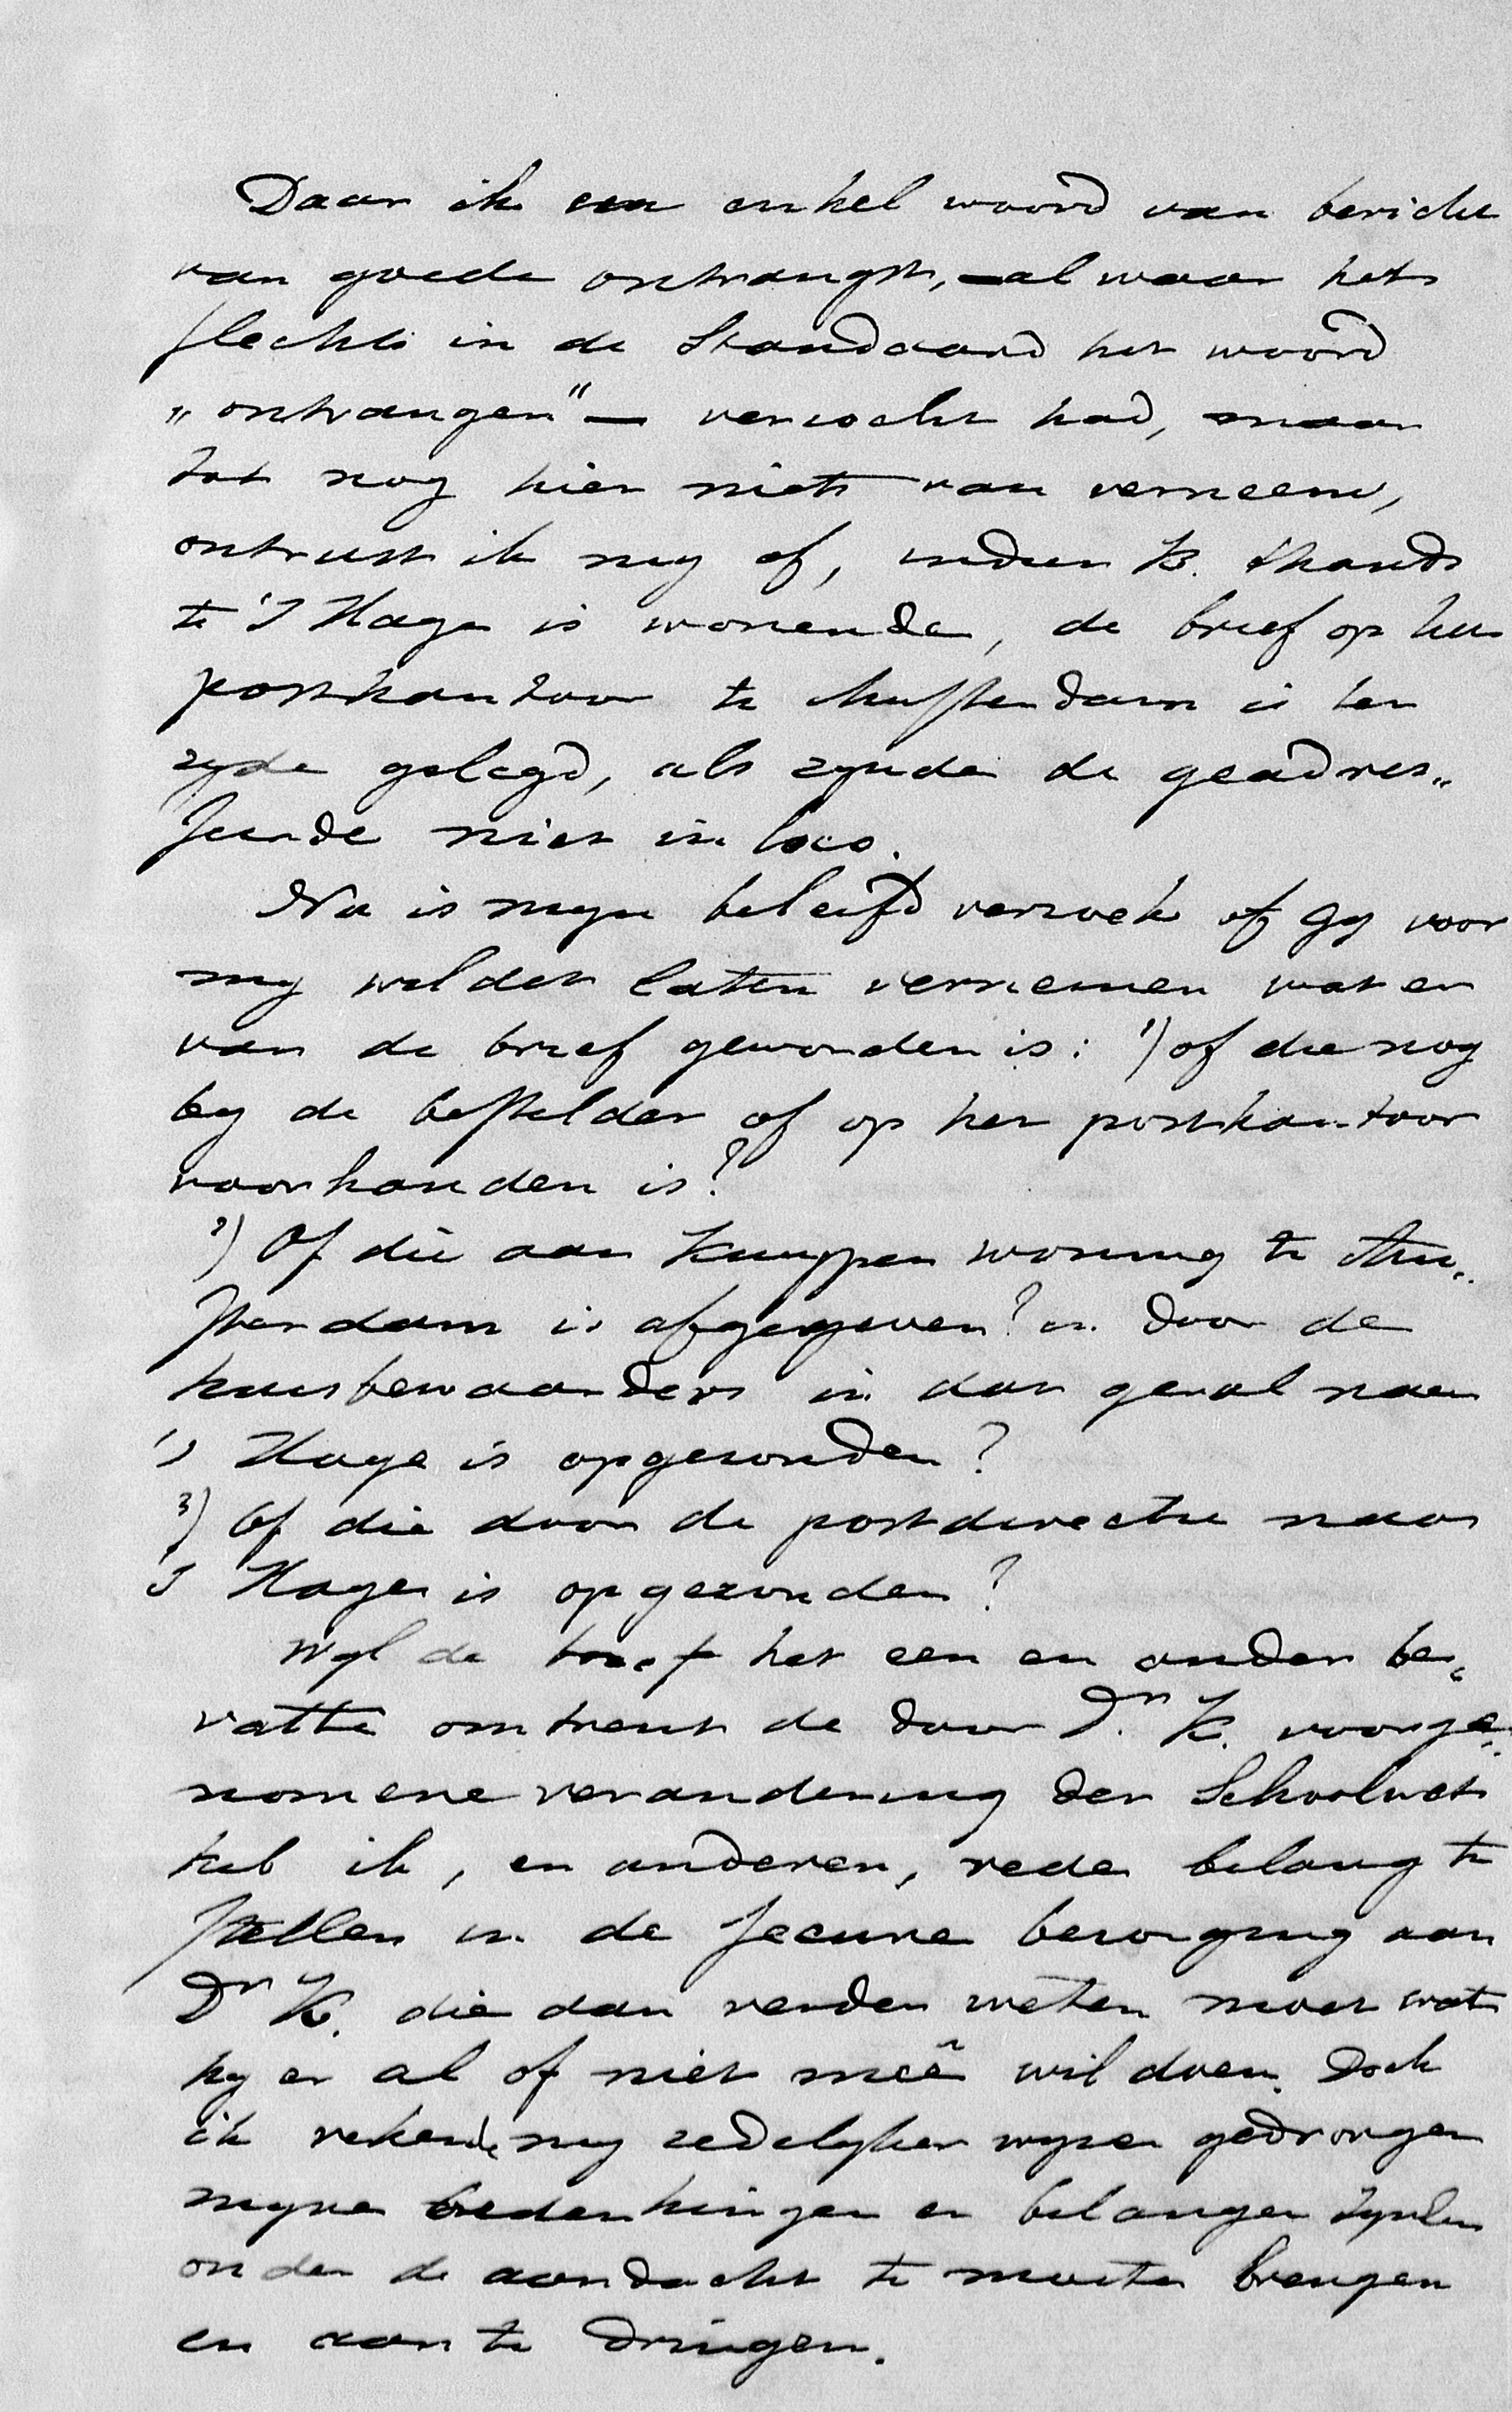 Daar ik een enkel woord van bericht
van goede ontvangst, – al waar het
slechts in de Standaard het woord
„ontvangen" – verwacht had, maar
tot nog hier niets van verneem,
ontrust ik my of, indien K. thands
te 's Hage is wonende, de brief op het
postkantoor te Amsterdam is ter
zyde gelegd, als zynde de geadres„
seerde niet in loco.
Nu is myn beleefd verzoek of Gy voor
my wildet laten vernemen wat er
van de brief geworden is: 1) of die nog
by de besteller of op het postkantoor
voorhanden is?
2) Of die aan Kuypers woning te Am„
sterdam is afgegeven? en door de
huisbewaarders in dat geval naar
's Hage is opgezonden?
3) Of die door de postdirectie naar
's Hage is opgezonden?
Wyl de brief het een en ander be„
vatte omtrent de door Dr. K. voorge„
nomene verandering der Schoolwet
heb ik, en anderen, rede belang te
stellen in de secure bezorging aan
Dr K. die dan verder weten moet wat
hy er al of niet meê wil doen. Doch
ik rekende my zedelyker wyze gedrongen
myne bedenkingen en belangen
onder de aandacht te moeten brengen
en aan te dringen.